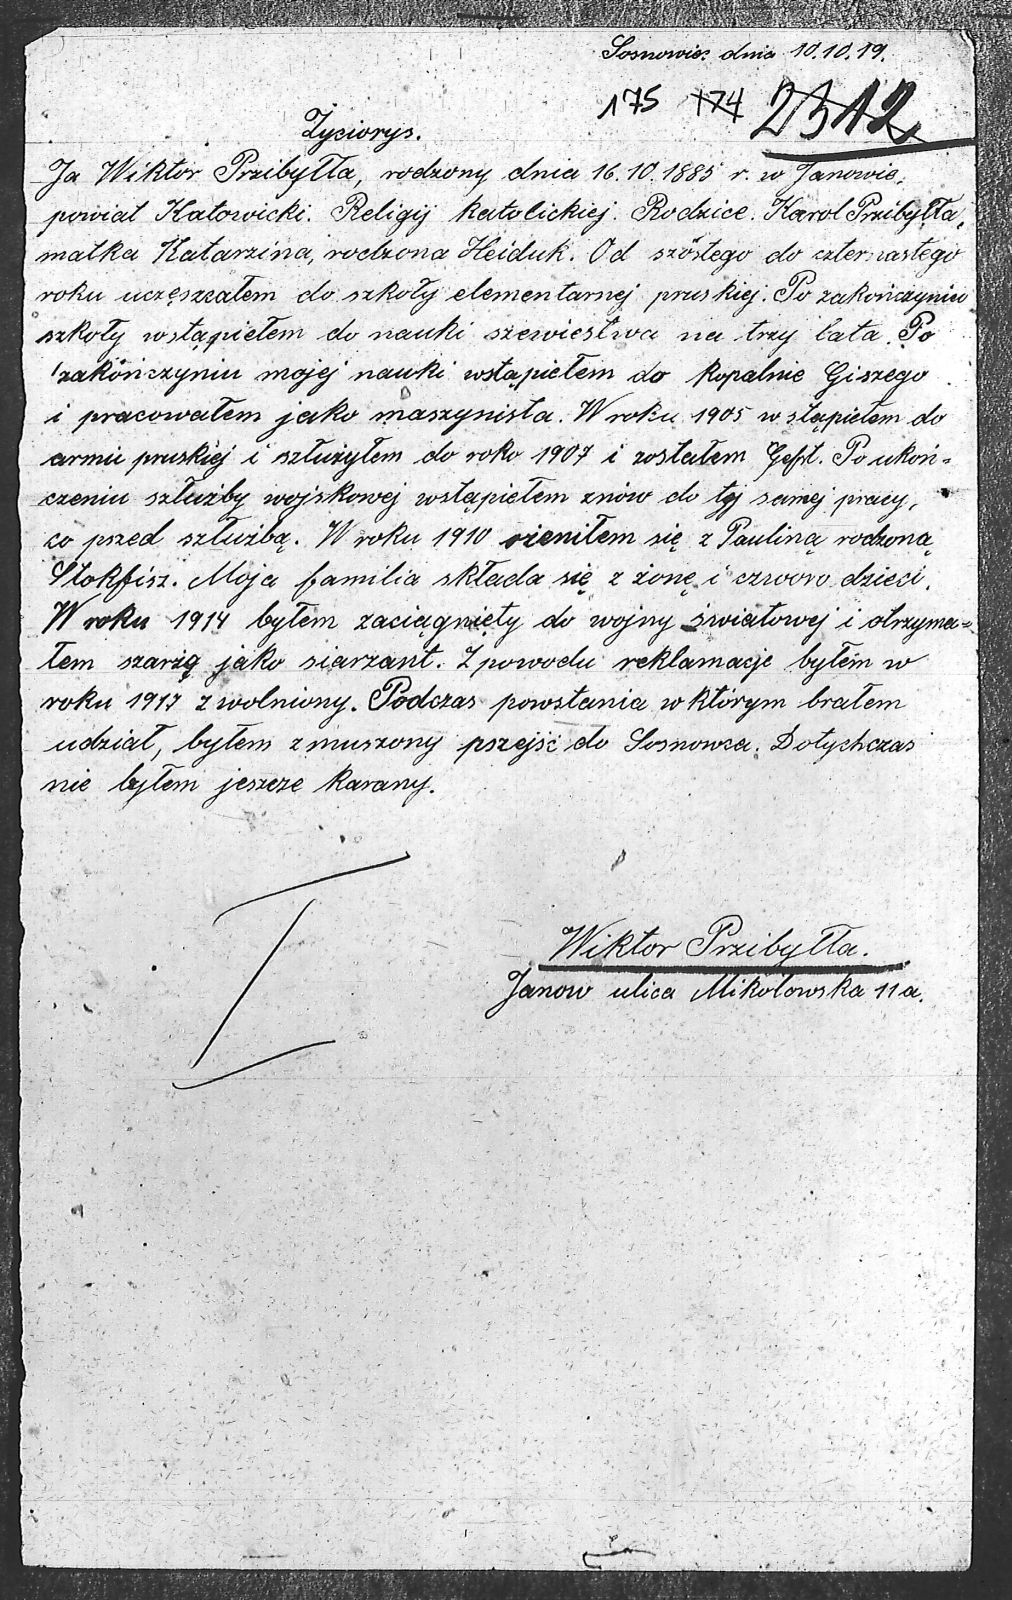 Sosnowiec dnia 10.10.19.
175 174 2312
Życiorys.
Ja Wiktor Przibyłła, rodzony dnia 16.10.1885 r. w Janowie,
powiat Katowicki. Religij katolickiej. Rodzice. Karol Przibyłła,
matka Katarzina, rodzona Heiduk. Od szóstego do czternastego
roku uczęszczałem do szkoły elementarnej pruskiej. Po zakończyniu
szkoły wstąpiełem do nauki szewiestwa na trzy lata. Po
zakończyniu mojej nauki wstąpiełem do kopalnie Giszego
i pracowałem jako maszynista. W roku 1905 wstąpiełem do
armii pruskiej i szłużyłem do roko 1907 i zostałem Gefrt. Po ukoń=
czeniu szłużby wojskowej wstąpiełem znów do tyj samej pracy,
co przed szłużbą. W roku 1910 ożeniłem się z Pauliną rodzoną
Stokfisz. Moja familia składa się z żonę i czworo dzieci.
W roku 1914 byłem zaciągnięty do wojny światowej i otrzyma=
łem szarżą jako siarzant. Z powodu reklamacje byłem w
roku 1917 zwolniony. Podczas powstania w którym brałem
udział, byłem zmuszony pszejść do Sosnowca. Dotychczas
nie byłem jeszcze karany.
I
Wiktor Przibyłła.
Janow ulica Mikołowska 11a.